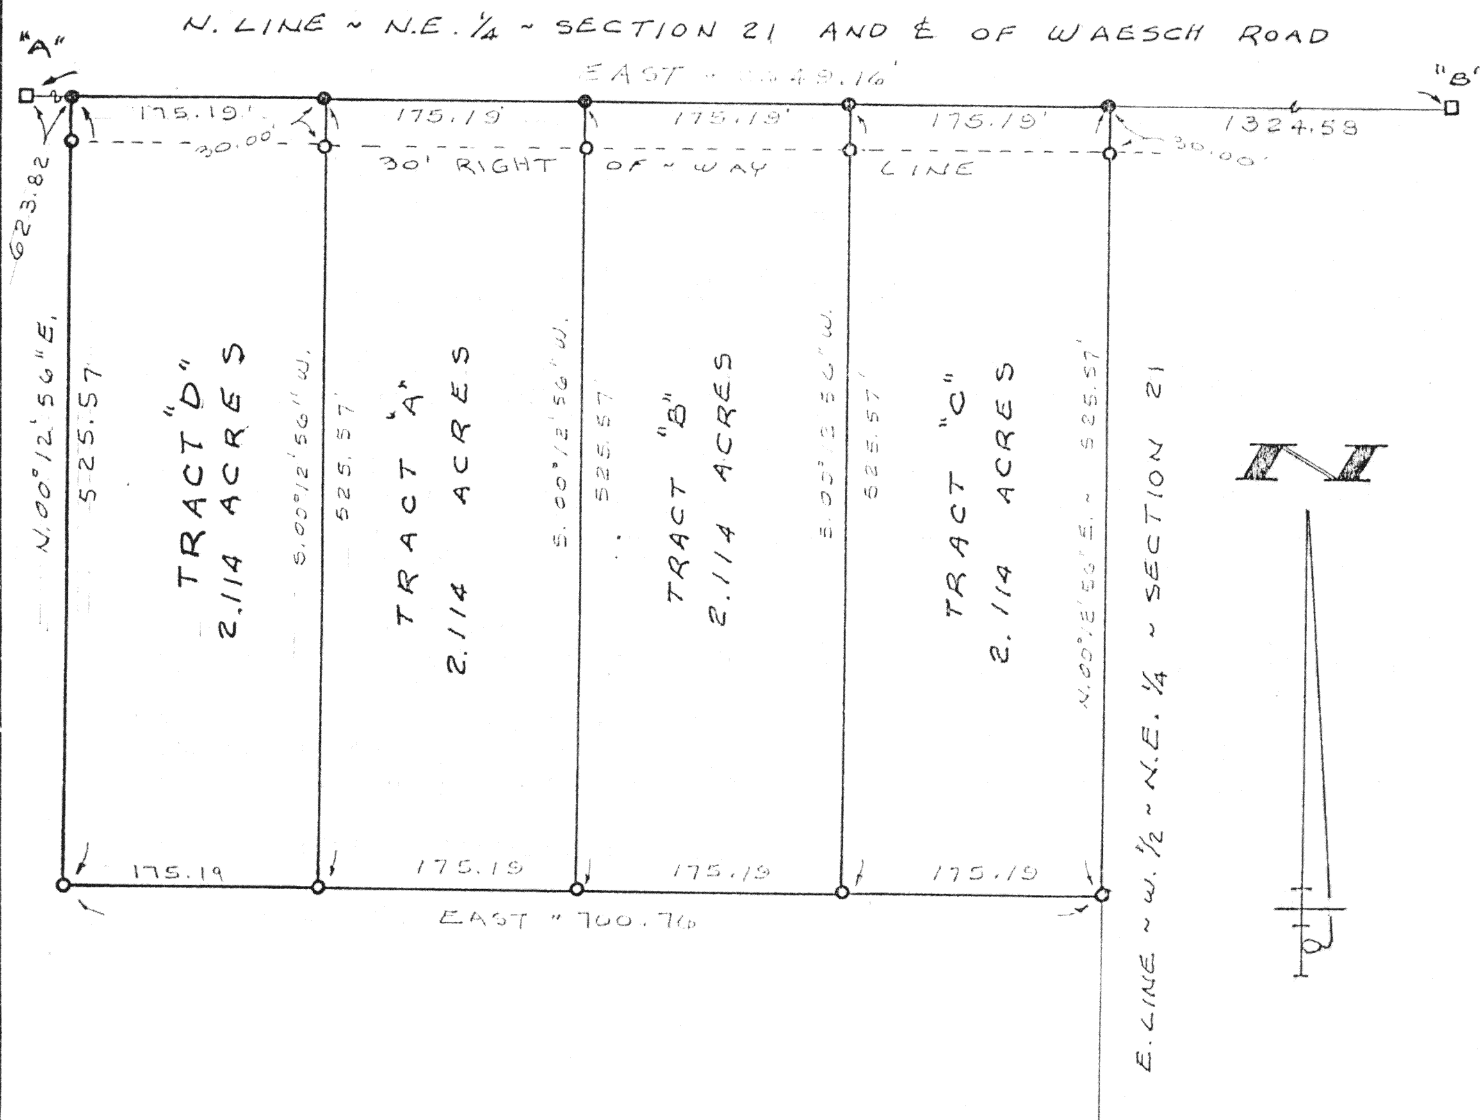 N. LINE ~ N.E. 1/4 ~ SECTION 21 AND ℄ OF WAESCH ROAD
"A"
"B"
EAST
175.19'
175.19'
175.19'
175.19'
1324.58
30.00'
30.00'
30' RIGHT OF ~ WAY LINE
623.82
N.00°12'56"E.
525.57'
TRACT "D"
2.114 ACRES
S.00°12'56"W.
525.57'
TRACT "A"
2.114 ACRES
S.00°12'56"W.
525.57'
TRACT "B"
2.114 ACRES
S.00°12'56"W.
525.57'
TRACT "C"
2.114 ACRES
N.00°12'56"E. ~ 525.57'
E. LINE ~ W. 1/2 ~ N.E. 1/4 ~ SECTION 21
N
175.19
175.19
175.19
175.19
EAST ~ 700.76